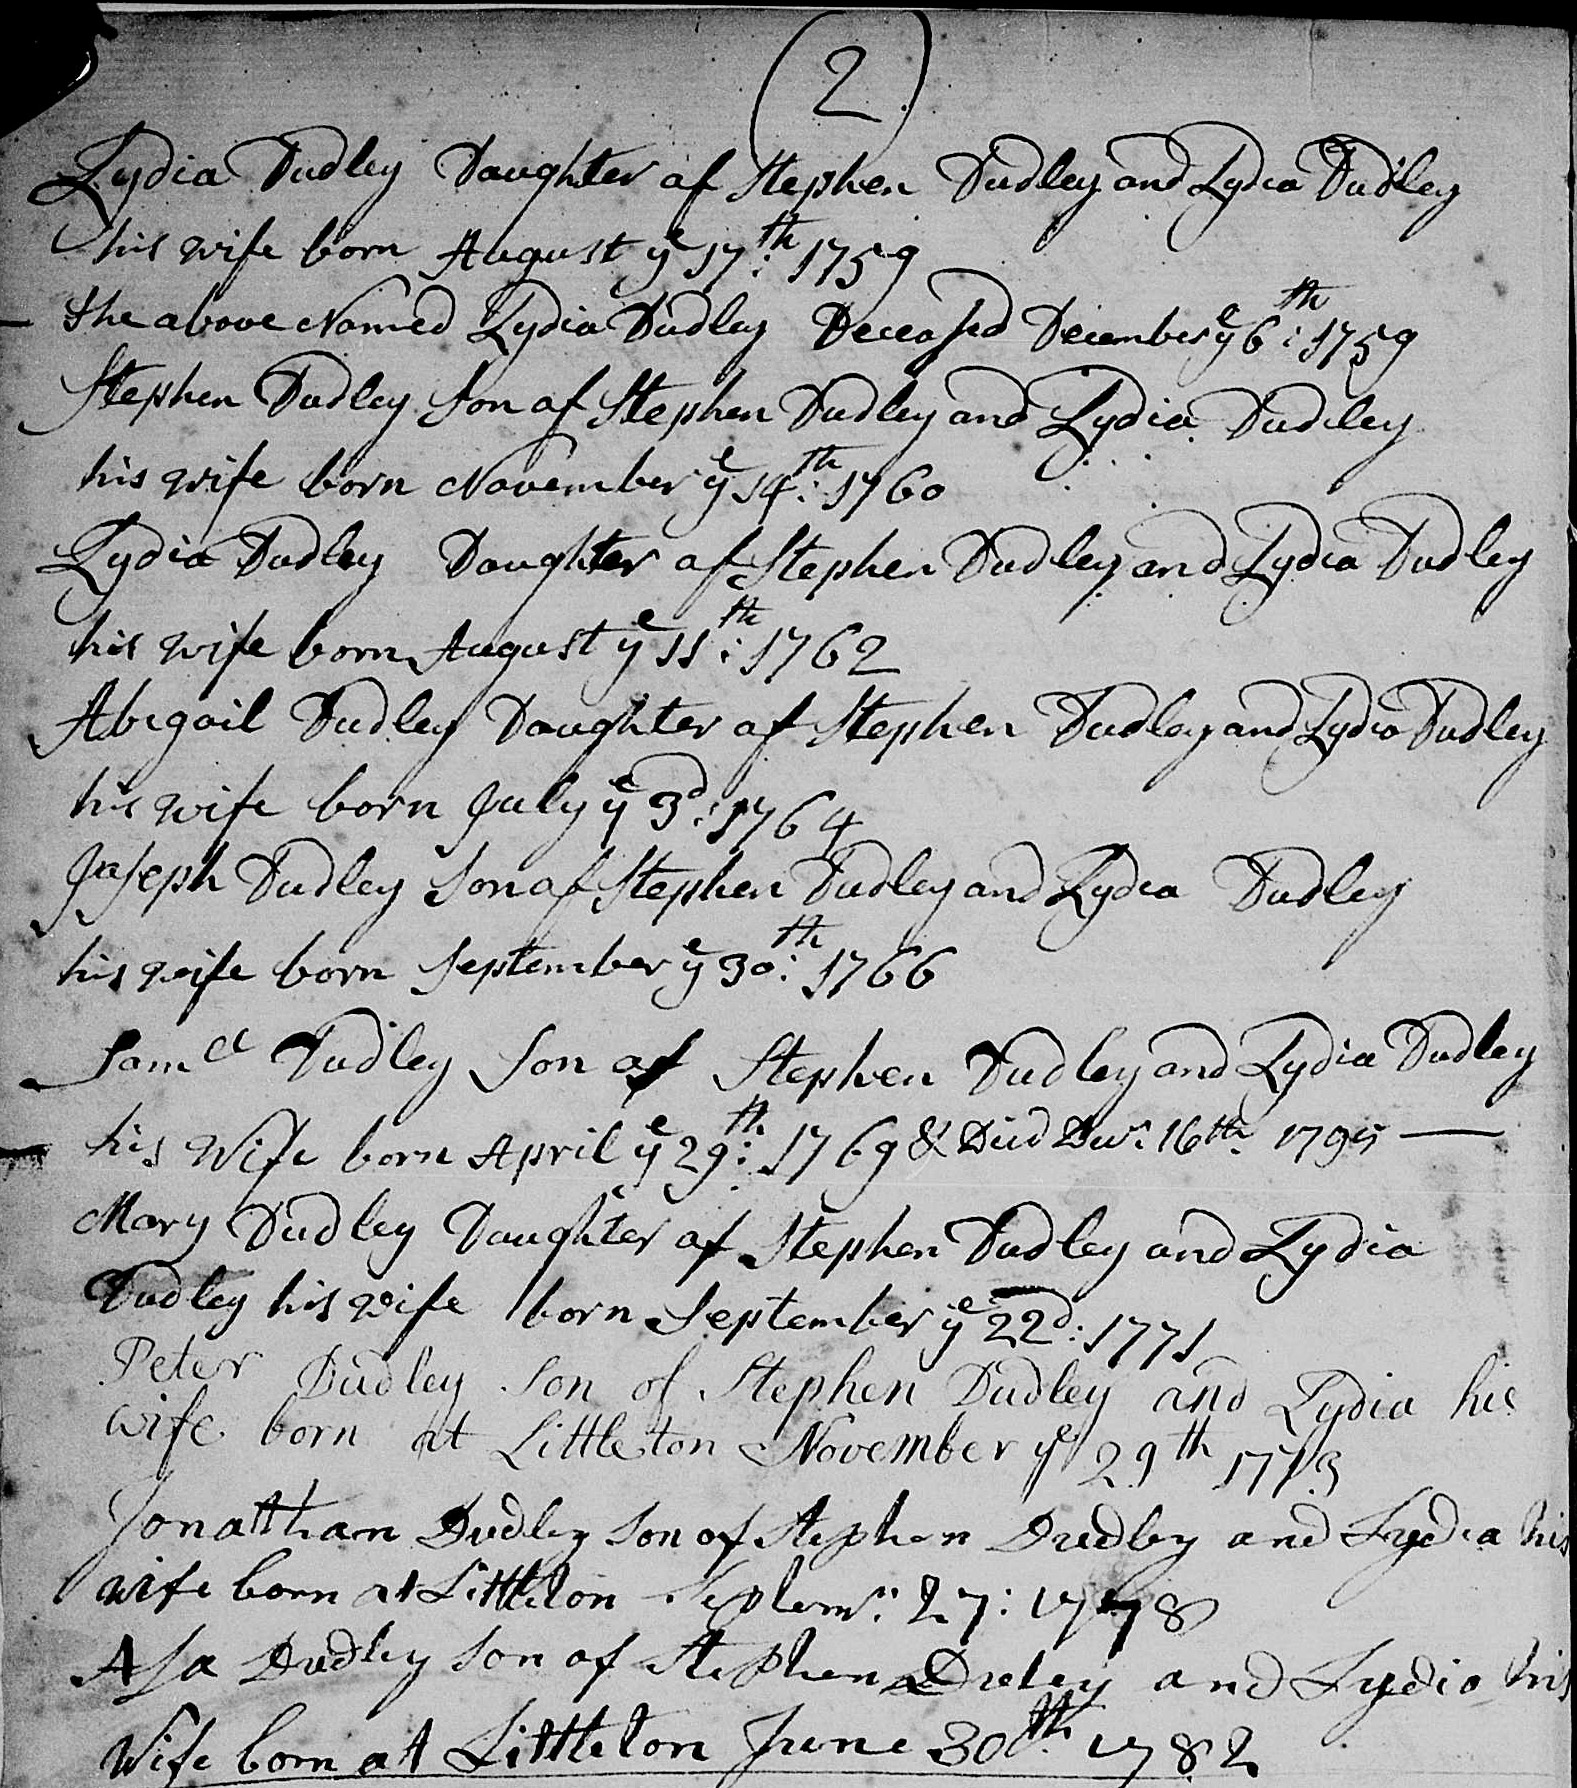 (2)
Lydia Dudley Daughter of Stephen Dudley and Lydia Dudley
his wife born August ye 17th: 1759
the above Named Lydia Dudley Deceased December ye 6th: 1759
Stephen Dudley Son of Stephen Dudley and Lydia Dudley
his wife born November ye 14th: 1760
Lydia Dudley Daughter of Stephen Dudley and Lydia Dudley
his wife born August ye 11th: 1762
Abigail Dudley Daughter of Stephen Dudley and Lydia Dudley
his wife born July ye 3d: 1764
Joseph Dudley Son of Stephen Dudley and Lydia Dudley
his wife born September ye 30th: 1766
Samel Dudley Son of Stephen Dudley and Lydia Dudley
his Wife born April ye 29th: 1769 & Died 16th. 1795 —
Mary Dudley Daughter of Stephen Dudley and Lydia
Dudley his wife born September ye 22d: 1771
Peter Dudley Son of Stephen Dudley and Lydia his
wife born at Littleton November ye 29th 1773
Jonatthan Dudley Son of Stephen Dudley and Lydia his
wife born at Littleton Septemr: 27: 1778
Asa Dudley Son of Stephen and Lydia his
Wife born at Littleton June 30th. 1782